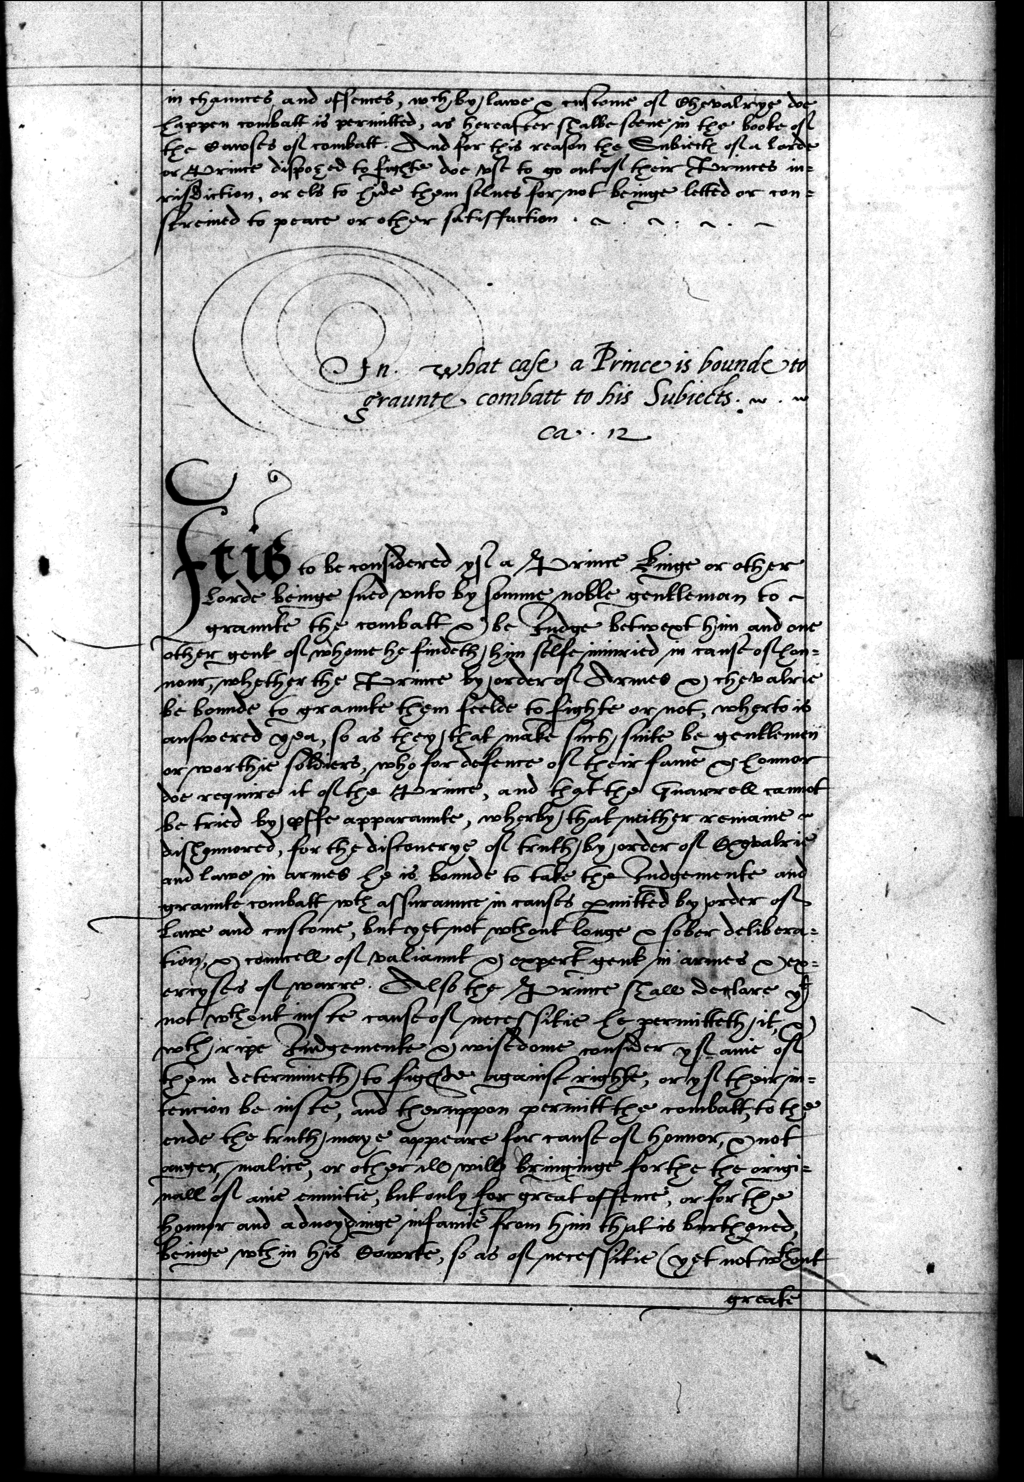 in chaunces, and offences, wch by lawe & custome of Chevalrye doe
happen combatt is permitted, as hereafter shalbe seene in the booke of
the Cawses of combatt. And for this reason the Subiect of a Lorde
or Prince disposed to fighte doe vse to go out of their Princes iu=
risdiction, or els to hide them selues for not beinge letted or con=
streined to peace or other satisfaction.
In what case a Prince is bounde to
graunte combatt to his Subiects.
Ca. 12
It is to be considered yf a Prince Kinge or other
Lorde beinge sued vnto by somme noble gentleman to
graunte the combatt & be Iudge betwext him and one
other gent of whome he findeth him selfe iniuried in cause of hon=
nour, whether the Prince by order of Armes & chevalrie
be bounde to graunte them feelde to fighte or not, wherto is
answered yea, so as they that make such suite be gentlemen
or worthie soldiers, who for defence of their fame & honnor
doe require it of the Prince, and that the Quarrell cannot
be tried by pffe apparaunte, wherby that neither remaine
dishonnored, for the discouerye of truth by order of Chevalrie
and lawe in armes he is bounde to take the Iudgemente and
graunte combatt wth assuraunce in causes pmitted by order of
Lawe and custome, but yet not wthout longe & sober delibera=
tion, & councell of valiaunt & expert gent in armes & ex=
ercyses of warre. Also the Prince shall declare yt
not wthout iuste cause of necessitie he permitteth it, &
wth ripe Iudgemente & wisedome consider yf anie of
them determineth to fighte against righte, or yf their in=
tencion be iuste, and theruppon permitt the combatt, to the
ende the truth maye appeare for cause of honnor, & not
anger, malice, or other ill will bringinge forthe the origi=
nall of anie enmitie, but only for great offence, or for the
honnor and aduoydinge infamie from him that is burthened,
beinge wthin his Cowrte, so as of necessitie (yet not wthout
greate